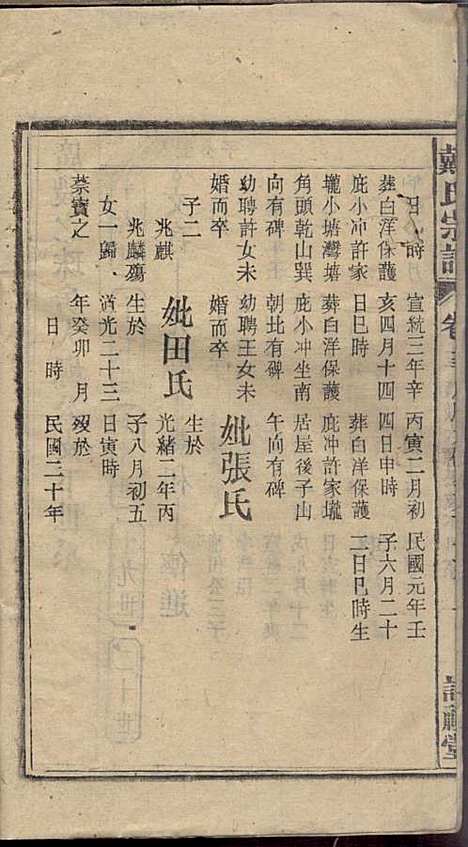 戴氏宗譜
卷
堂
日 時
葬白洋保護
庇小冲許家
壠小塘灣塘
角頭乾山巽
向有碑
幼聘許女未
婚而卒
子二
兆麒
兆麟殤
女一歸
寶之
宣統三年辛
亥四月十四
日巳時
葬白洋保護
庇小冲坐南
朝北有碑
幼聘王女未
婚而卒
妣田氏
生於
道光二十三
年癸卯 月
日 時
丙寅二月初
四日申時
葬白洋保護
庇冲許家壠
居屋後子山
午向有碑
妣張氏
生於
光緒二年丙
子八月初五
日寅時
歿於
民國二十年
民國元年壬
子六月二十
二日巳時生